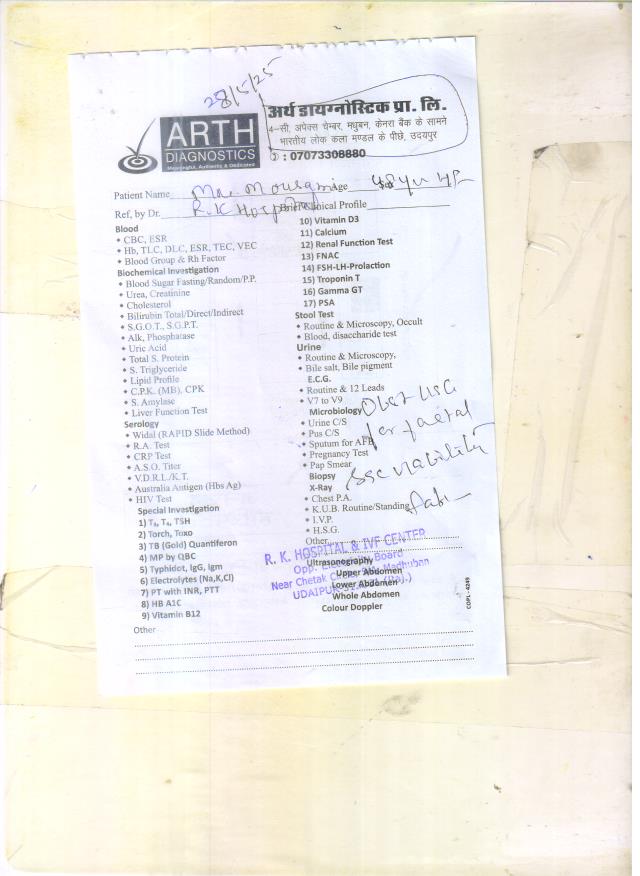 28/5/25
ARTH
DIAGNOSTICS
Meaningful, Authentic & Dedicated
अर्थ डायग्नोस्टिक प्रा. लि.
4-सी, अपेक्स चेम्बर, मधुबन, केनरा बैंक के सामने
भारतीय लोक कला मण्डल के पीछे, उदयपुर
: 07073308880
Patient Name Age
Ref, by Dr. R.K Hospital Brief Clinical Profile
Blood
• CBC, ESR
• Hb, TLC, DLC, ESR, TEC, VEC
• Blood Group & Rh Factor
Biochemical Investigation
• Blood Sugar Fasting/Random/P.P.
• Urea, Creatinine
• Cholesterol
• Bilirubin Total/Direct/Indirect
• S.G.O.T., S.G.P.T.
• Alk, Phosphatase
• Uric Acid
• Total S. Protein
• S. Triglyceride
• Lipid Profile
• C.P.K. (MB), CPK
• S. Amylase
• Liver Function Test
Serology
• Widal (RAPID Slide Method)
• R.A. Test
• CRP Test
• A.S.O. Titer
• V.D.R.L./K.T.
• Australia Antigen (Hbs Ag)
• HIV Test
Special Investigation
1) T₃, T₄, TSH
2) Torch, Toxo
3) TB (Gold) Quantiferon
4) MP by QBC
5) Typhidot, IgG, Igm
6) Electrolytes (Na,K,Cl)
7) PT with INR, PTT
8) HB A1C
9) Vitamin B12
10) Vitamin D3
11) Calcium
12) Renal Function Test
13) FNAC
14) FSH-LH-Prolaction
15) Troponin T
16) Gamma GT
17) PSA
Stool Test
• Routine & Microscopy, Occult
• Blood, disaccharide test
Urine
• Routine & Microscopy,
• Bile salt, Bile pigment
E.C.G.
• Routine & 12 Leads
• V7 to V9
Microbiology
• Urine C/S
• Pus C/S
• Sputum for AFB
• Pregnancy Test
• Pap Smear
Biopsy
X-Ray
• Chest P.A.
• K.U.B. Routine/Standing
• I.V.P.
• H.S.G.
Other
Obst USG
for faetal
viability
R. K. HOSPITAL & IVF CENTER
Board
Near Chetak Madhuban
UDAIPUR (Raj.)
Ultrasonography
Upper Abdomen
Lower Abdomen
Whole Abdomen
Colour Doppler
COPL-4249
Other